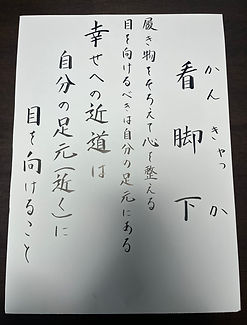 看脚下
かんきゃっか
履き物をそろえて心を整える
目を向けるべきは自分の足元にある
幸せへの近道は
自分の足元(近く)に
目を向けること